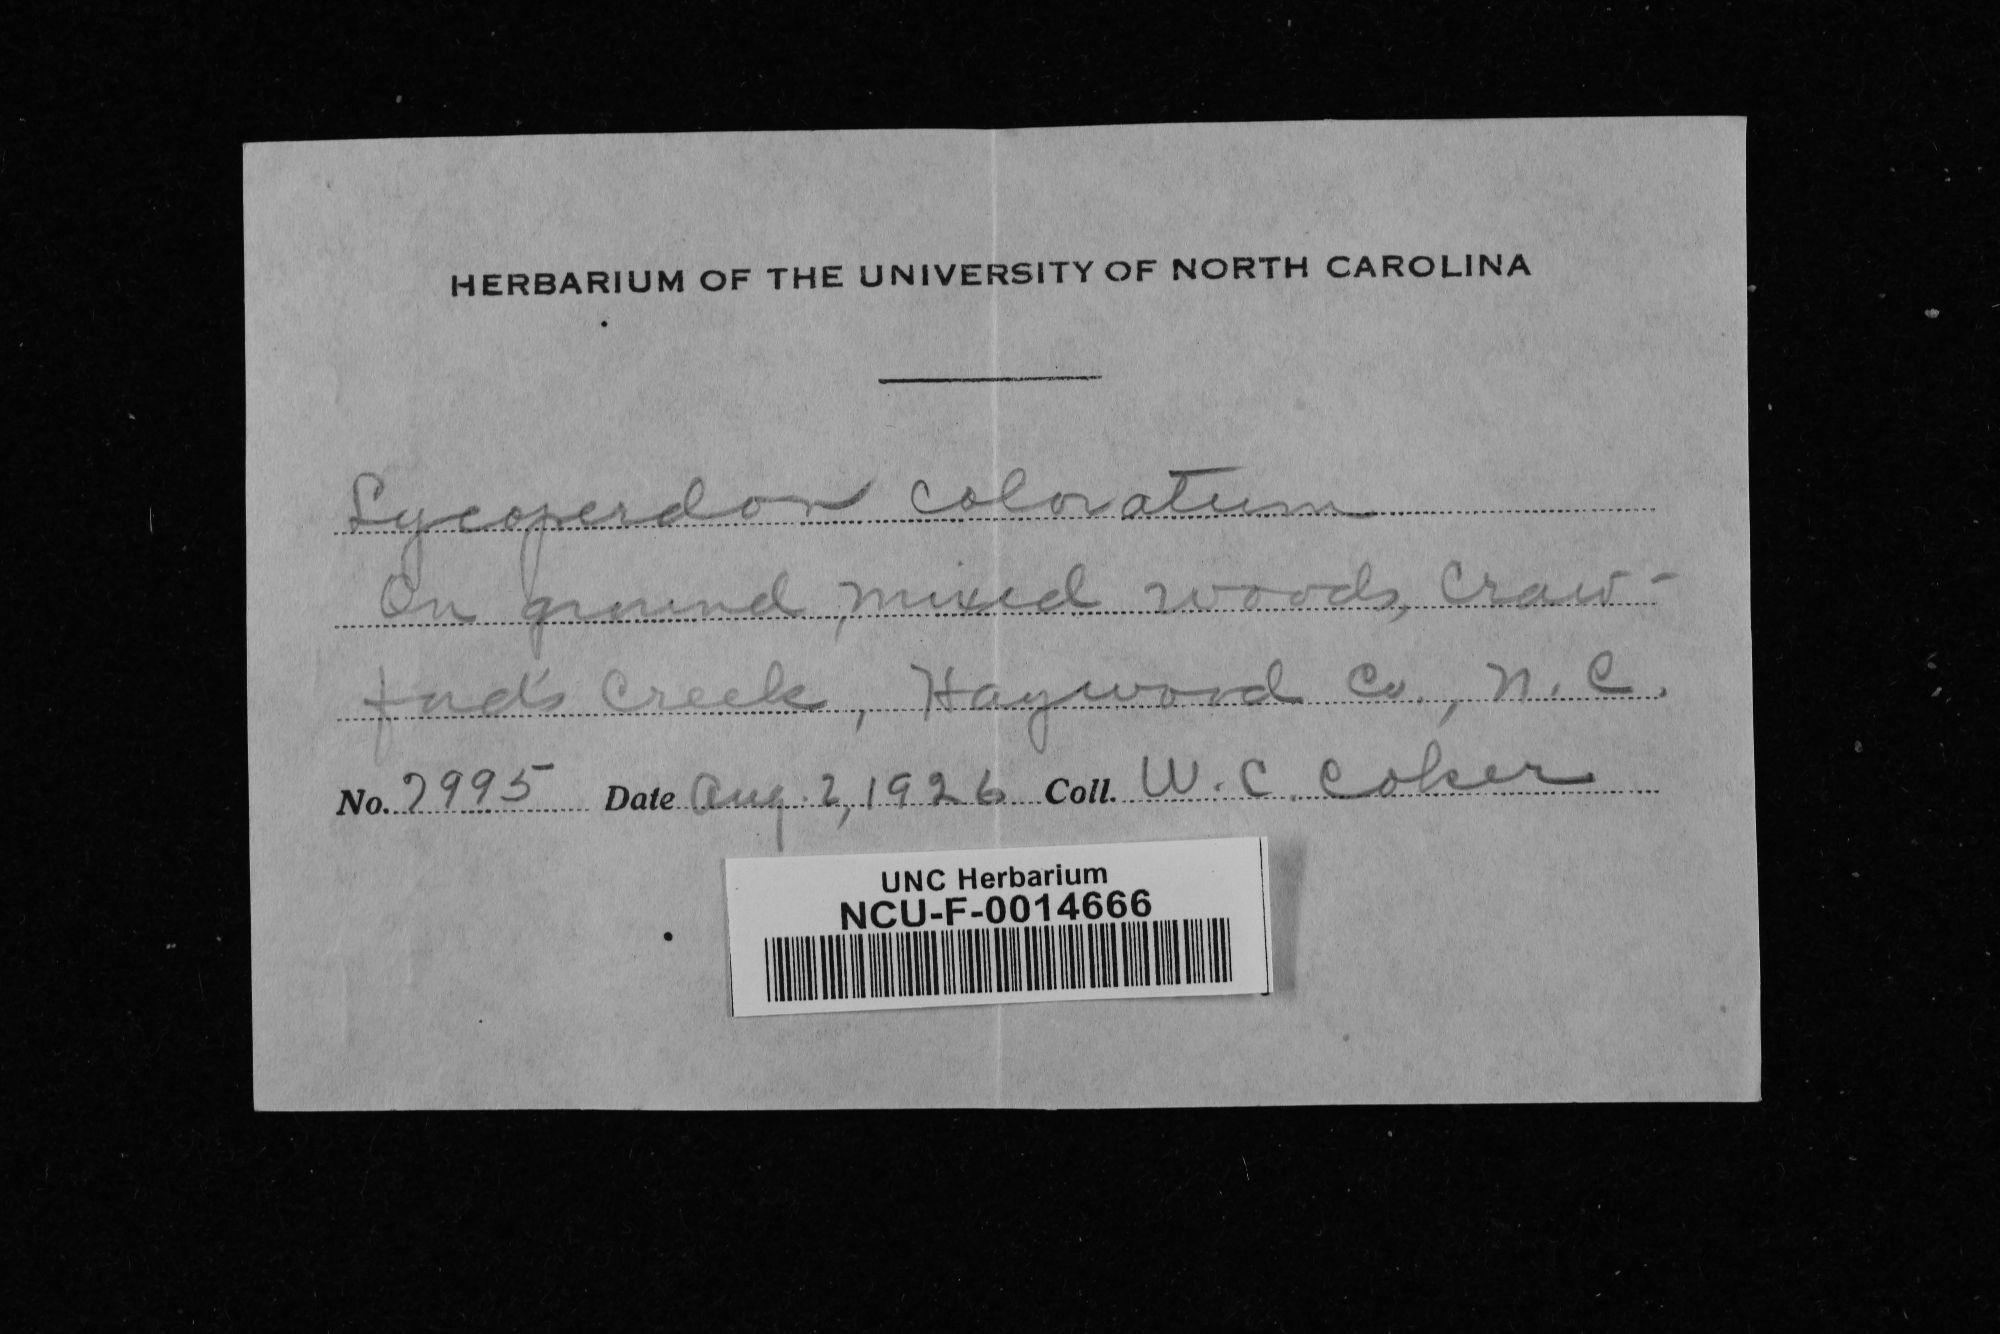 HERBARIUM OF THE UNIVERSITY OF NORTH CAROLINA
Lycoperdon coloratum
On ground, mixed woods, Craw-
ford's Creek, Haywood Co., N.C.
No. 7995 Date Aug. 2, 1926 Coll. W.C. Coker
UNC Herbarium
NCU-F-0014666